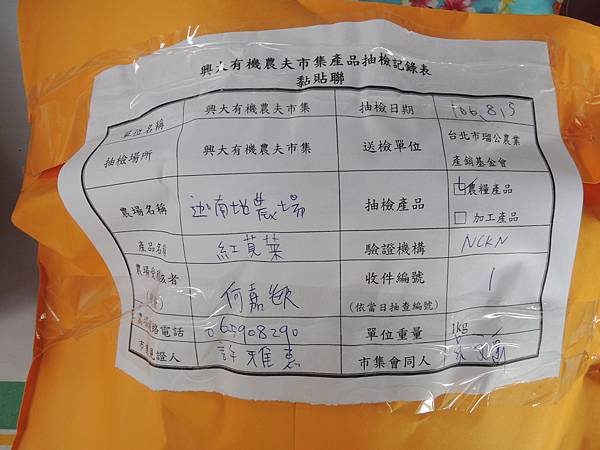 興大有機農夫市集產品抽檢記錄表
黏貼聯
單位名稱 興大有機農夫市集 抽檢日期 106.8.5
抽檢場所 興大有機農夫市集 送檢單位 台北市瑠公農業
產銷基金會
農場名稱 迦南地農場 抽檢產品 ☑農糧產品
□ 加工產品
產品名稱 紅莧菜 驗證機構 NCKN
農場受檢者 何嘉欽 收件編號 1
(依當日抽查編號)
聯絡電話 065908290 單位重量 1kg
市集見證人 許雅惠 市集會同人